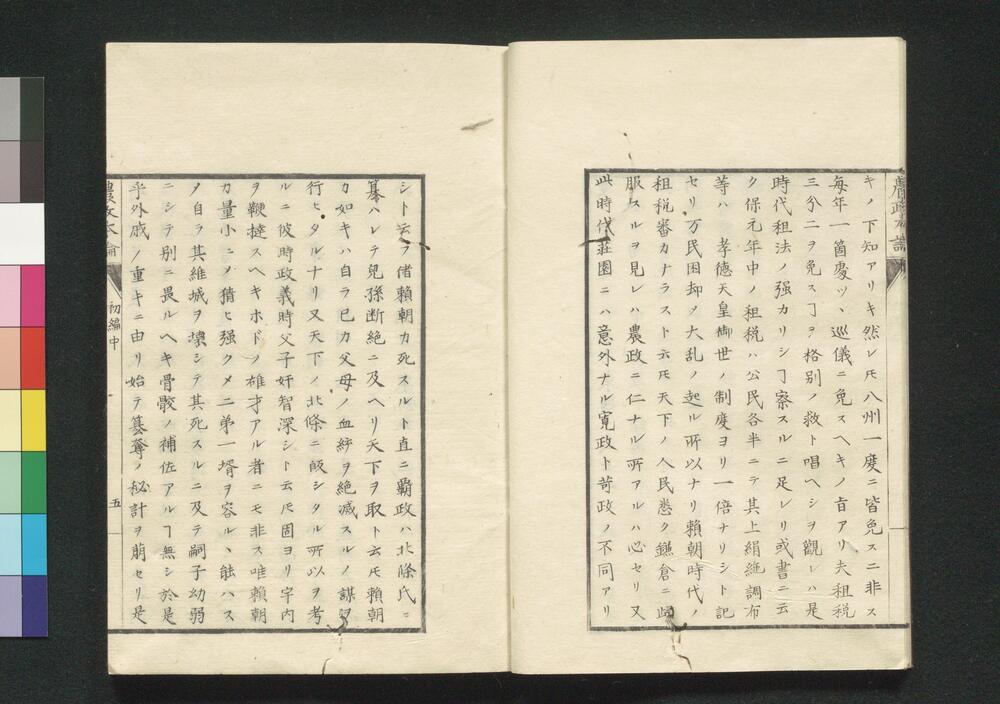 キノ下知アリキ然レ𪜈八州一度ニ皆免スニ非ス
毎年一箇度ツヽ巡儀ニ免スヘキノ旨アリ夫租税
三分ニヲ免スヿヲ格別ノ救ト唱ヘシヲ觀レハ是
時代租法ノ强カリシヿ察スルニ足レリ或書ニ云
ク保元年中ノ租税ハ公民各半ニテ其上絹絁調布
等ハ 孝德天皇御世ノ制度ヨリ一倍ナリシト記
セリ万民困却ノ大乱ノ起ル所以ナリ賴朝時代ノ
租税審カナラスト云𪜈天下ノ人民悉ク鎌倉ニ歸
服スルヲ見レハ農政ニ仁ナル所アルハ必セリ又
此時代莊園ニハ意外ナル寛政ト苛政ノ不同アリ
シト云フ偖賴朝カ死スルト直ニ覇政ハ北條氏ニ
簒ハレテ兒孫断絶ニ及ヘリ天下ヲ取ト云𪜈賴朝
カ如キハ自ラ已カ父母ノ血統ヲ絶滅スルノ謀ヲ
行ヒタルナリ又天下ノ北條ニ皈シタル所以ヲ考
ルニ彼時政義時父子奸智深シト云𪜈固ヨリ宇内
ヲ鞭撻スヘキホドノ雄才アル者ニモ非ス唯賴朝
カ量小ニノ猜ヒ强クメ二弟一壻ヲ容ルヽ能ハス
ノ自ラ其維城ヲ壊シテ其死スルニ及テ嗣子幼弱
ニシテ別ニ畏ルヘキ骨骸ノ補佐アルヿ無シ於是
乎外戚ノ重キニ由リ始テ簒奪ノ秘計ヲ萠セリ是
農政本論
初編中
五